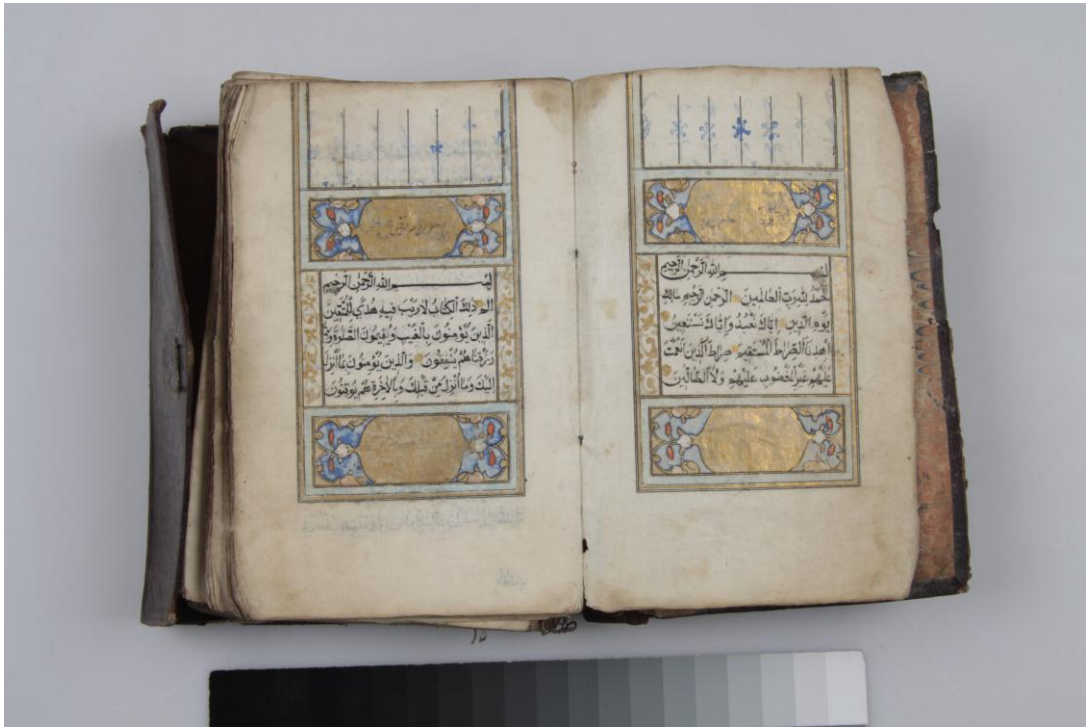 بِسْمِ اللهِ الرَّحْمٰنِ الرَّحِيمِ
الْحَمْدُ لِلّٰهِ رَبِّ الْعَالَمِينَ الرَّحْمٰنِ الرَّحِيمِ مَالِكِ
يَوْمِ الدِّينِ إِيَّاكَ نَعْبُدُ وَإِيَّاكَ نَسْتَعِينُ
اهْدِنَا الصِّرَاطَ الْمُسْتَقِيمَ صِرَاطَ الَّذِينَ أَنْعَمْتَ
عَلَيْهِمْ غَيْرِ الْمَغْضُوبِ عَلَيْهِمْ وَلَا الضَّالِّينَ
بِسْمِ اللهِ الرَّحْمٰنِ الرَّحِيمِ
الم ذَلِكَ الْكِتَابُ لَا رَيْبَ فِيهِ هُدًى لِلْمُتَّقِينَ
الَّذِينَ يُؤْمِنُونَ بِالْغَيْبِ وَيُقِيمُونَ الصَّلٰوةَ وَمِمَّا
رَزَقْنَاهُمْ يُنْفِقُونَ وَالَّذِينَ يُؤْمِنُونَ بِمَا أُنْزِلَ
إِلَيْكَ وَمَا أُنْزِلَ مِنْ قَبْلِكَ وَبِالْآخِرَةِ هُمْ يُوقِنُونَ